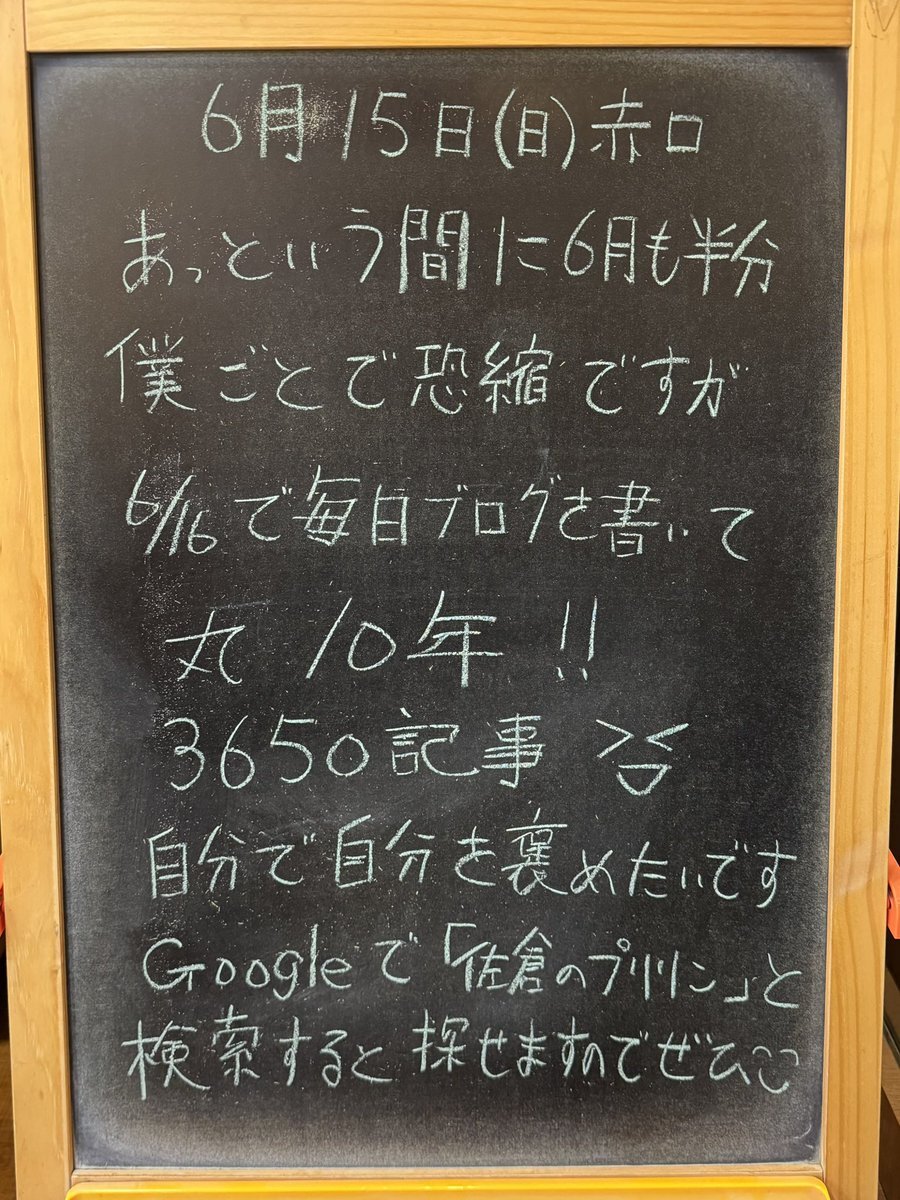 6月15日(日)赤口
あっという間に6月も半分
僕ごとで恐縮ですが
6/16で毎日ブログを書いて
丸10年!!
3650記事
自分で自分を褒めたいです
Googleで「佐倉のプリリン」と
検索すると探せますのでぜひ